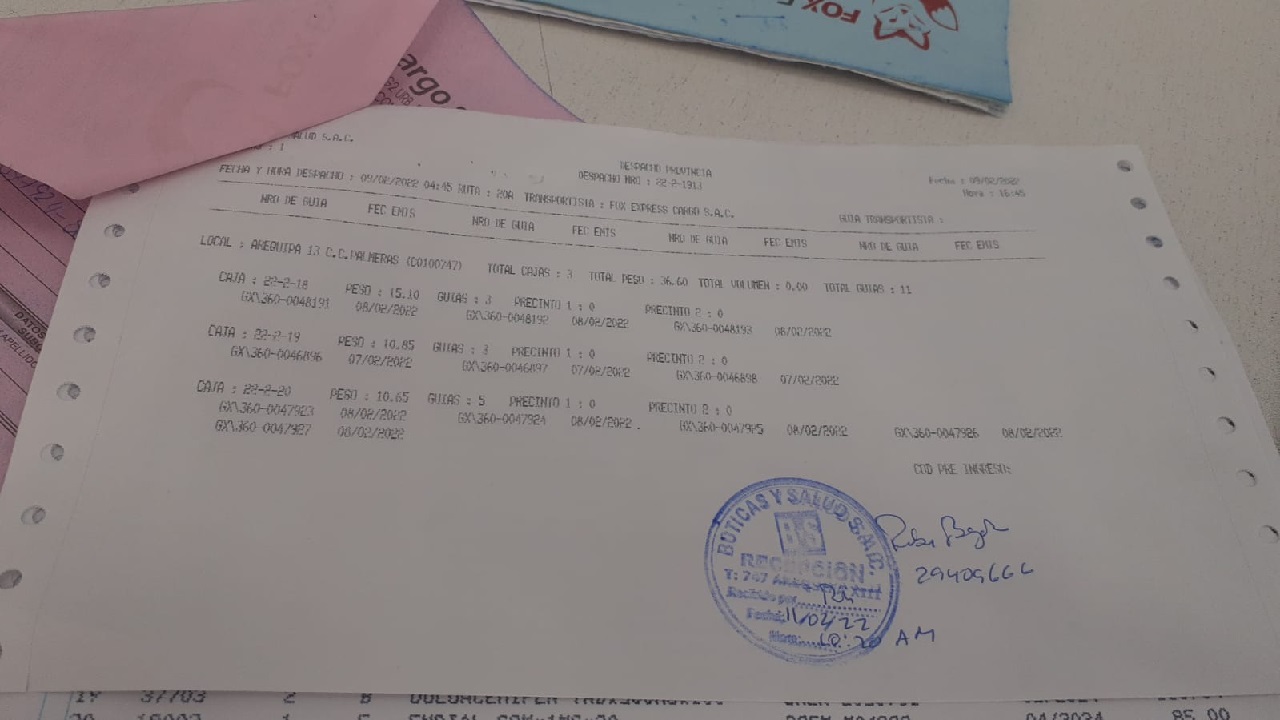 FOX E
argo
SALUD S.A.C.
: 1
DESPACHO PROVINCIA
DESPACHO NRO : 22-2-1911
Fecha : 09/02/2022
Hora : 16:45
FECHA Y HORA DESPACHO : 09/02/2022 04:45 RUTA : 20A TRANSPORTISTA : FOX EXPRESS CARGO S.A.C.
GUIA TRANSPORTISTA :
NRO DE GUIA FEC EMIS NRO DE GUIA FEC EMIS NRO DE GUIA FEC EMIS NRO DE GUIA FEC EMIS
LOCAL : AREQUIPA 13 C.C.PALMERAS (C0100747) TOTAL CAJAS : 3 TOTAL PESO : 36.60 TOTAL VOLUMEN : 0.00 TOTAL GUIAS : 11
CAJA : 22-2-18 PESO : 15.10 GUIAS : 3 PRECINTO 1 : 0 PRECINTO 2 : 0
GX\360-0048191 08/02/2022 GX\360-0048192 08/02/2022 GX\360-0048193 08/02/2022
CAJA : 22-2-19 PESO : 10.85 GUIAS : 3 PRECINTO 1 : 0 PRECINTO 2 : 0
GX\360-0046896 07/02/2022 GX\360-0046897 07/02/2022 GX\360-0046898 07/02/2022
CAJA : 22-2-20 PESO : 10.65 GUIAS : 5 PRECINTO 1 : 0 PRECINTO 2 : 0
GX\360-0047923 08/02/2022 GX\360-0047924 08/02/2022 GX\360-0047925 08/02/2022 GX\360-0047926 08/02/2022
GX\360-0047927 08/02/2022
COD PRE INGRESO:
BOTICAS Y SALUD S.A.C.
BS
RECEPCION
T: 747
Recibido por:
Fecha: 11/02/22
Hora: 10:20 AM
29409666
37703 2 B
04/2024 85.00